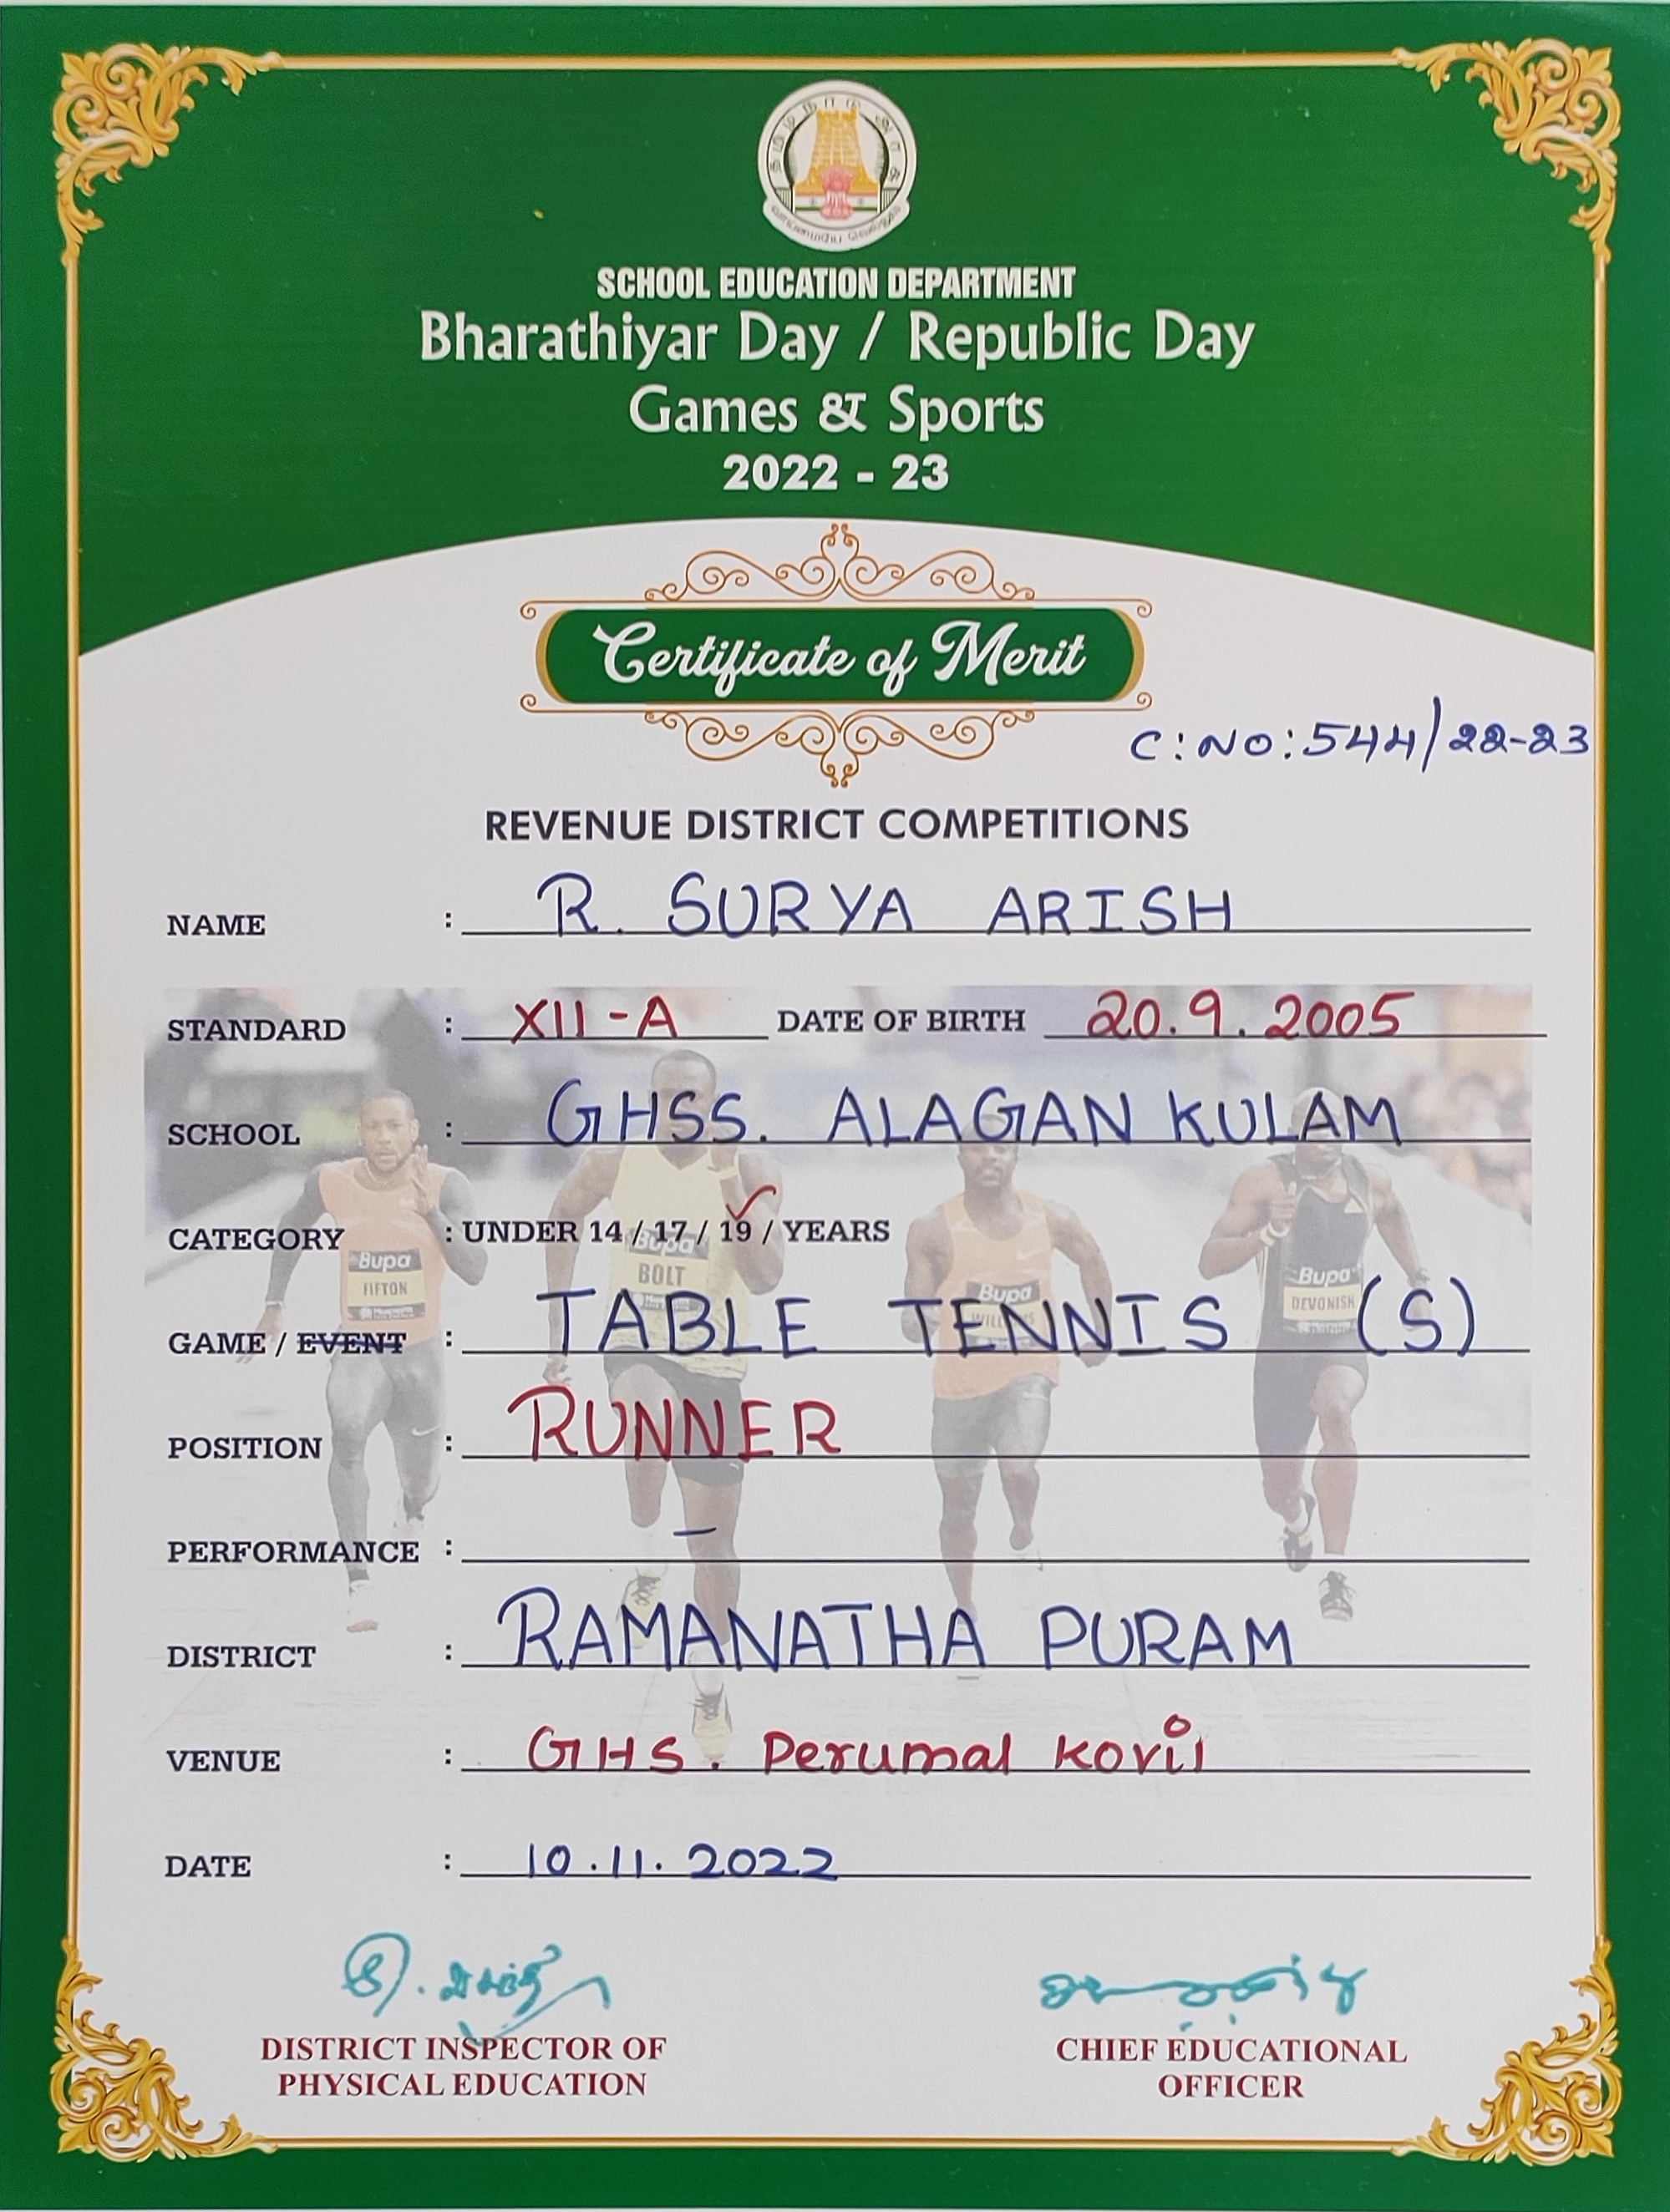 தமிழ்நாடு அரசு
வாய்மையே வெல்லும்
SCHOOL EDUCATION DEPARTMENT
Bharathiyar Day / Republic Day
Games & Sports
2022 - 23
Certificate of Merit
C:NO:544/22-23
REVENUE DISTRICT COMPETITIONS
NAME : R. SURYA ARISH
STANDARD : XII-A DATE OF BIRTH 20.9.2005
SCHOOL : GHSS. ALAGAN KULAM
CATEGORY : UNDER 14 / 17 / 19 / YEARS
Bupa
FIFTON
Bupa
BOLT
Bupa
Bupa
DEVONISH
GAME / EVENT : TABLE TENNIS (S)
POSITION : RUNNER
PERFORMANCE : –
DISTRICT : RAMANATHA PURAM
VENUE : GHS. Perumal Kovil
DATE : 10.11.2022
DISTRICT INSPECTOR OF
PHYSICAL EDUCATION
CHIEF EDUCATIONAL
OFFICER